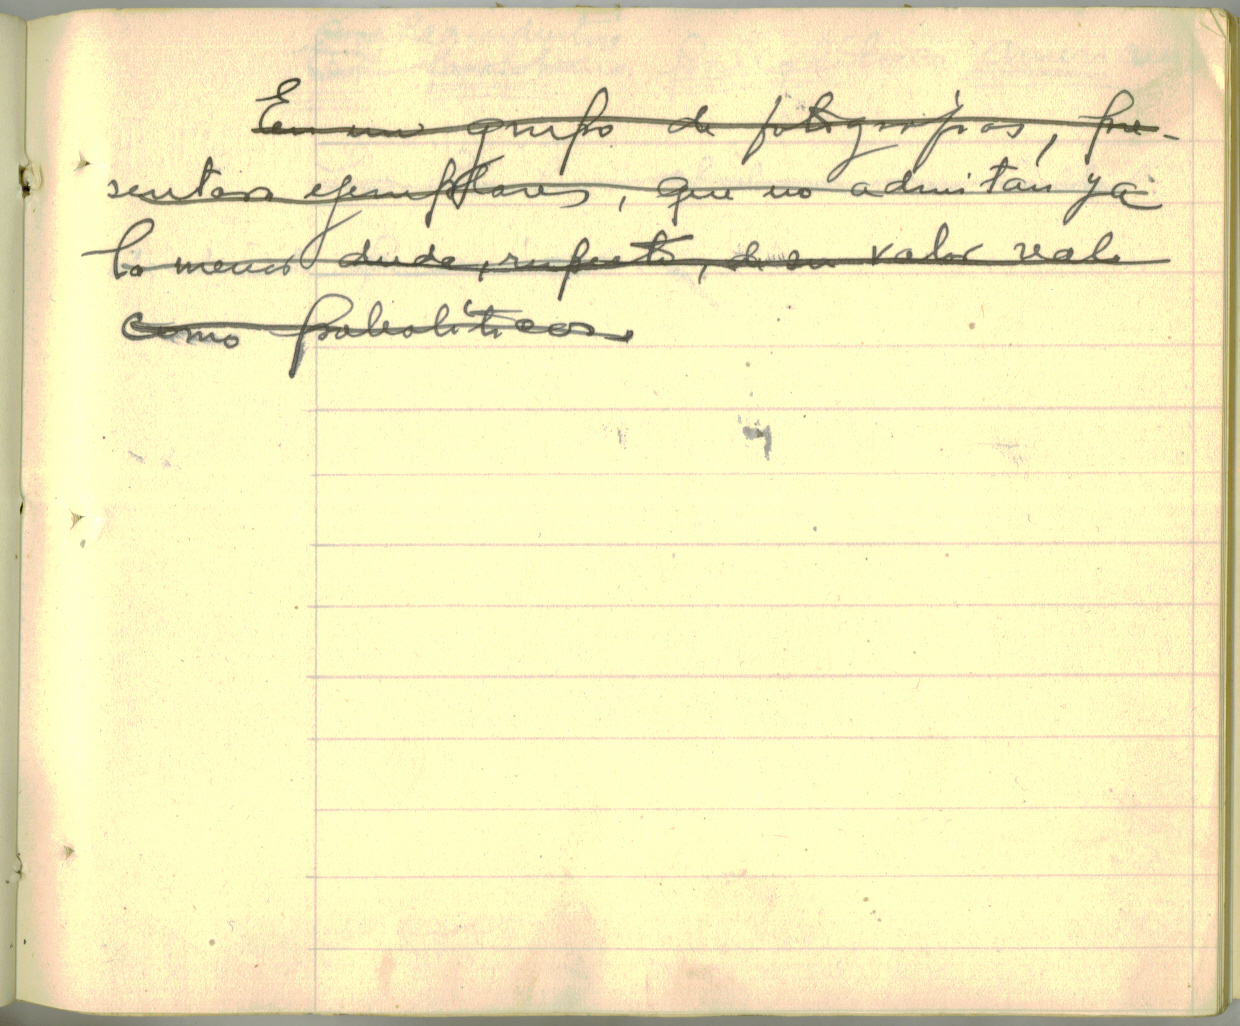 En un grupo de fotografías, pre-
sentar ejemplares, que no admitan ya
la menor duda, respecto, de su valor real
como paleolíticos